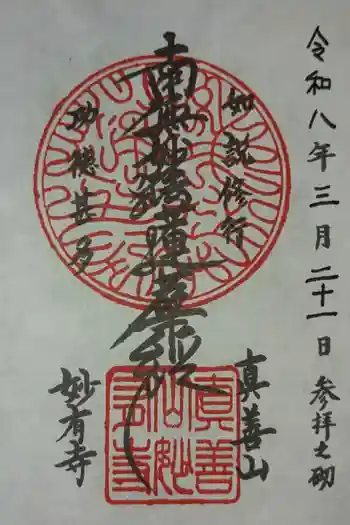 令和八年三月二十一日 参拝之砌
如説修行
南無妙法蓮華経
功徳甚多
真善山
妙有寺